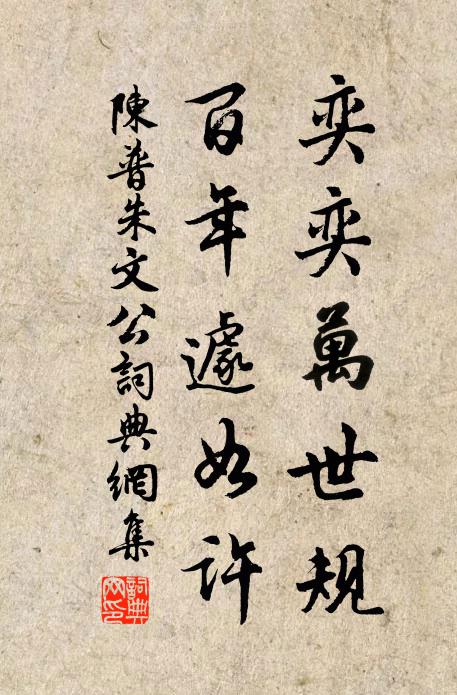 奕奕萬世規
百年遽如許
陳普朱文公詞典網集
詞典網印